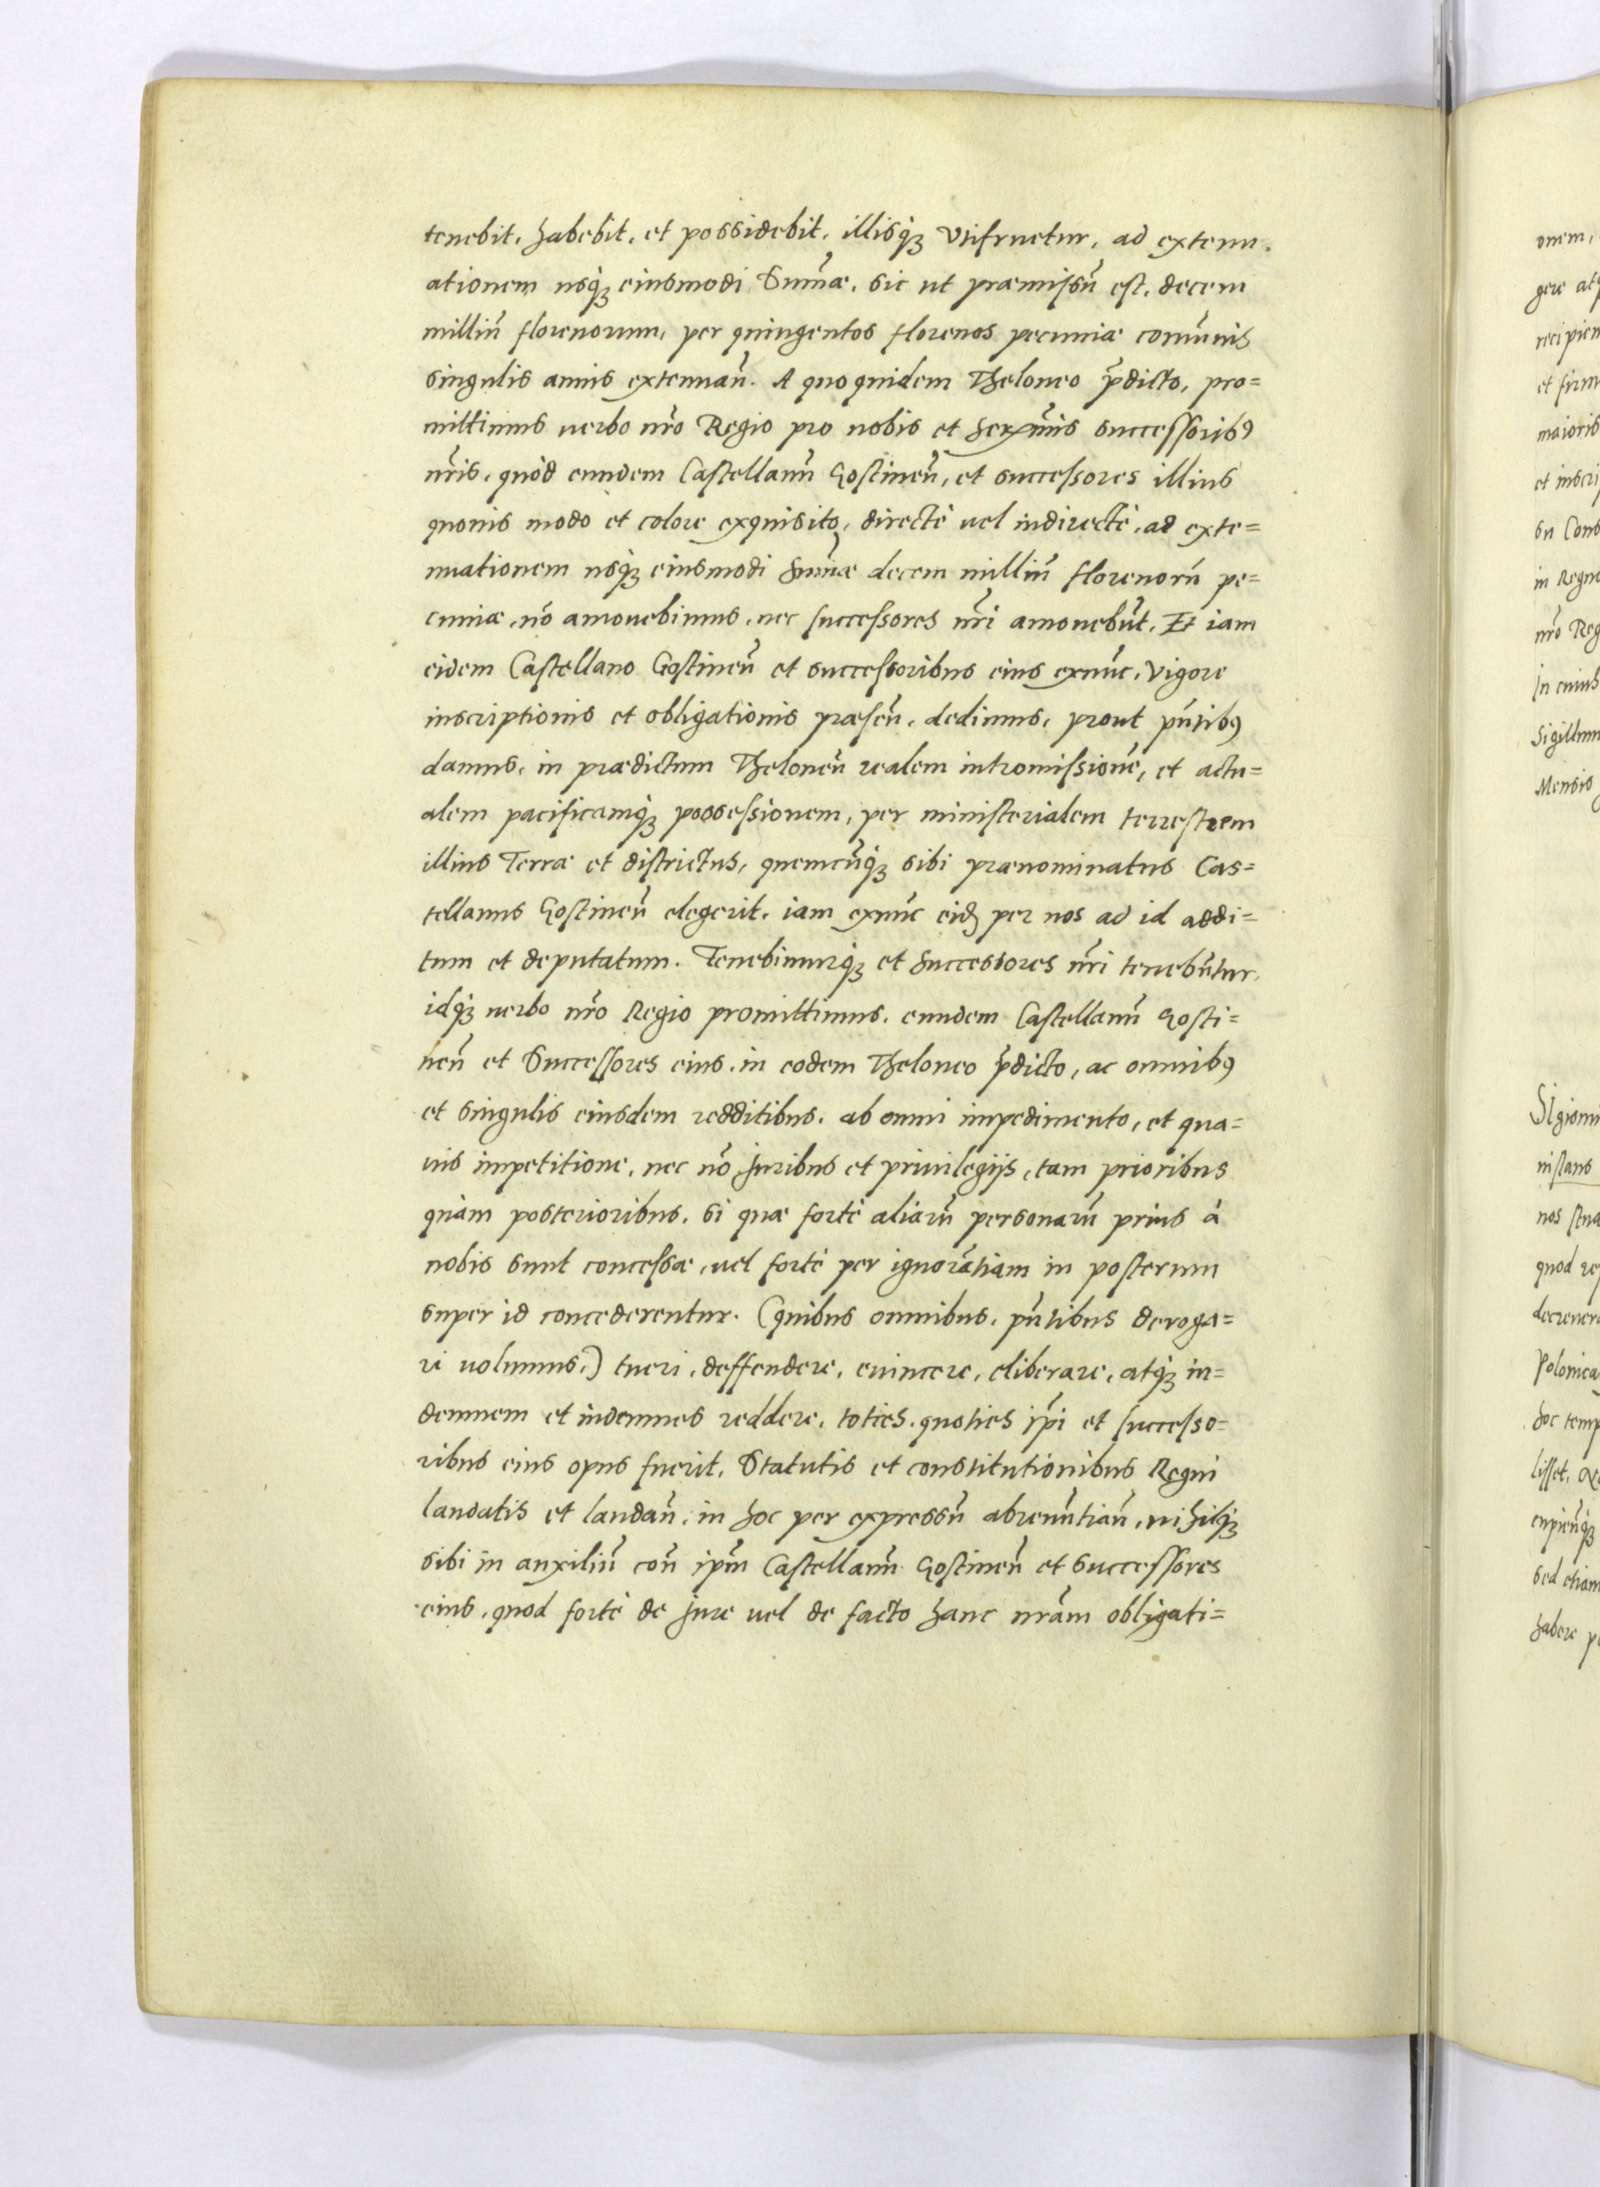 tenebit, habebit, et possidebit, illisq́ꝫ vtifruetur, ad extenu
ationem usq́ꝫ eiusmodi Sum̄æ, sic ut præmissū est, decem
milliū florenorum, per quingentos florenos pecuniæ com̄unis
singulis annis extenuan̄. A quo quidem Theloneo p̄dicto, pro=
mittimus uerbo nr̄o Regio pro nobis et Ser̄mis successorib9
nr̄is, quòd eundem Castellanū Gostinen̄, et successores illius
quouis modo et colore exquisito, directè uel indirectè, ad exte=
nuationem usq́ꝫ eiusmodi Sum̄æ decem milliū florenorū pe=
cuniæ, nō amouebimus, nec successores nr̄i amouebūt. Et iam
eidem Castellano Gostinen̄ et successoribus eius exnūc, vigore
inscriptionis et obligationis præsen̄, dedimus, prout pn̄tib9
damus, in prædictum Thelonen̄ realem intromissionē, et actu=
alem pacificamq́ꝫ possessionem, per ministerialem terrestrem
illius Terræ et districtus, quemcūq́ꝫ sibi prænominatus Cas=
tellanus Gostinen̄ elegerit, iam exnūc eid per nos ad id addi=
tum et deputatum. Tenebimurq́ꝫ et Successores nr̄i tenebūtur,
idq́ꝫ uerbo nr̄o Regio promittimus, eundem Castellanū Gosti=
nen̄ et Successores eius, in eodem Theloneo p̄dicto, ac omnib9
et singulis eiusdem redditibus, ab omni impedimento, et qua=
uis impetitione, nec nō Juribus et priuilegijs, tam prioribus
quàm posterioribus, si quæ fortè aliarū personarū prius à
nobis sunt concessæ, uel fortè per ignorātiam in posterum
super id concederentur. (quibus omnibus, pn̄tibus deroga=
ri uolumus,) tueri, deffendere, euincere, eliberare, atq́ꝫ in=
demnem et indemnes reddere, toties, quoties ip̄i et successo=
ribus eius opus fuerit, Statutis et constitutionibus Regni
laudatis et laudan̄, in hoc per expressū abrenūtian̄, nihilq́ꝫ
sibi in auxiliū con̄ ip̄m Castellanū Gostinen̄ et Successores
eius, quod fortè de Jure uel de facto hanc nr̄am obligati=
onem,
recipien
et firm
maioris
et inscri
su Cons
in Regno
nr̄o Reg
In cuius
Sigillum
Mensis
Sigism
nos
quod re
Polonica
hoc temp
sed etiam
habere p